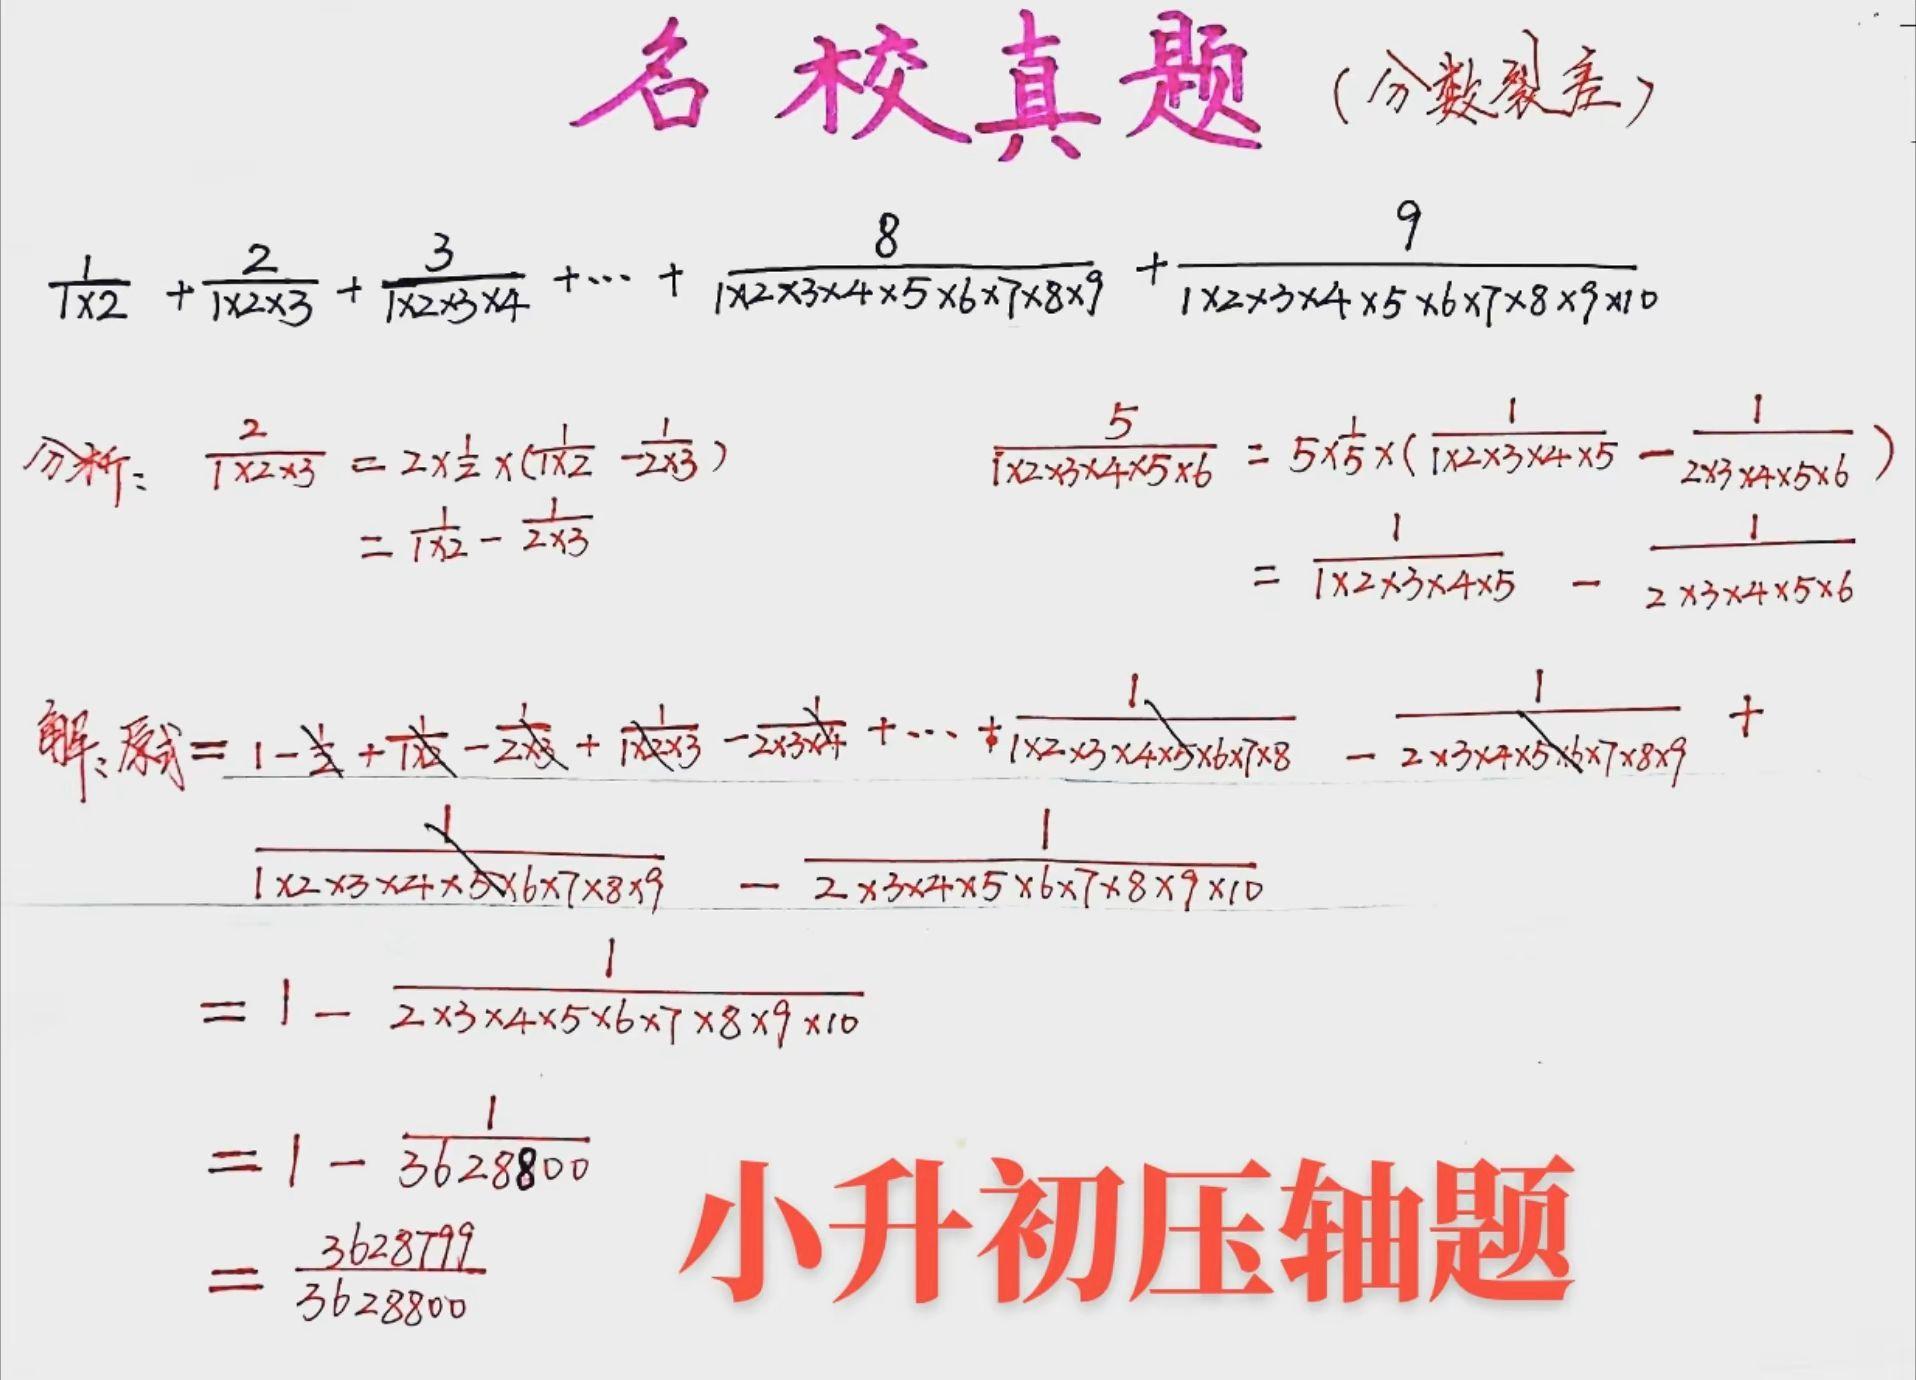 名校真题(分数裂差)
1/1×2 + 2/1×2×3 + 3/1×2×3×4 +…+ 8/1×2×3×4×5×6×7×8×9 + 9/1×2×3×4×5×6×7×8×9×10
分析: 2/1×2×3 = 2×1/2×(1/1×2 - 1/2×3) 5/1×2×3×4×5×6 = 5×1/5×(1/1×2×3×4×5 - 1/2×3×4×5×6)
= 1/1×2 - 1/2×3 = 1/1×2×3×4×5 - 1/2×3×4×5×6
解:原式= 1 - 1/2 + 1/1×2 - 1/2×3 + 1/1×2×3 - 1/2×3×4 +…+ 1/1×2×3×4×5×6×7×8 - 1/2×3×4×5×6×7×8×9 +
1/1×2×3×4×5×6×7×8×9 - 1/2×3×4×5×6×7×8×9×10
= 1 - 1/2×3×4×5×6×7×8×9×10
= 1 - 1/3628800
= 3628799/3628800
小升初压轴题